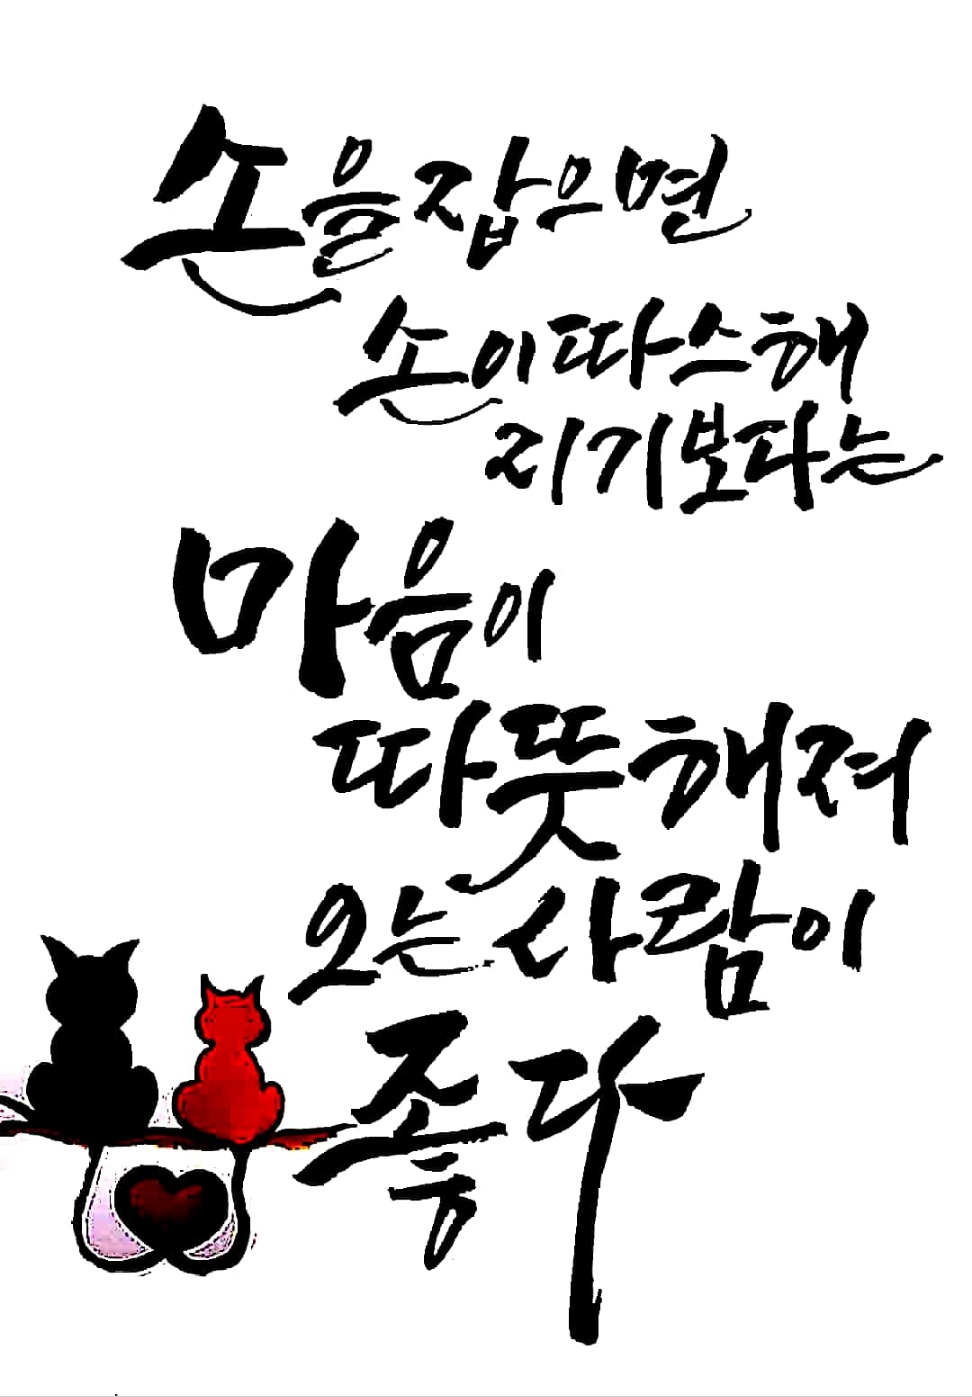 손을잡으면
손이따스해
지기보다는
마음이
따뜻해져
오는사람이
좋다